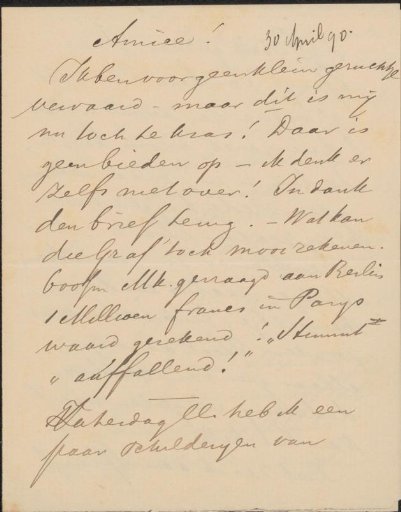 Amice! 30 April 90.
Ik ben voor geen klein geruchtje
vervaard - maar dit is mij
nu toch te kras! Daar is
geen bieden op - ik denk er
zelfs niet over! In dank
den brief terug. - Wat kan
die Graf toch mooi rekenen.
Mk. gevraagd aan Berlin
1 Millioen francs in Parys
waard gerekend! "Stimmt
"auffallend!"
Zaterdag ll. heb ik een
paar schilderyen van